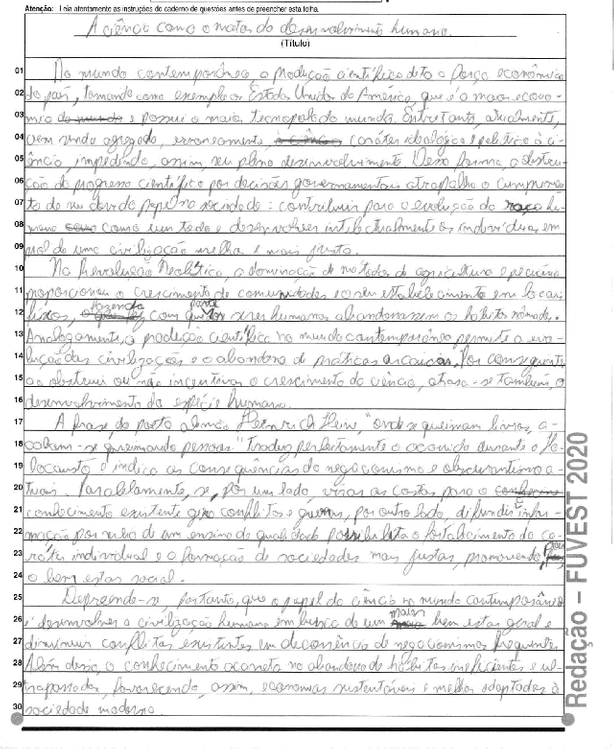 Atenção: Leia atentamente as instruções do caderno de questões antes de preencher esta folha.
A ciência como o motor do desenvolvimento humano.
(Título)
01 No mundo contemporâneo, a produção científica dita a força econômica
02 do país, tomando como exemplo os Estados Unidos da América, que é a maior econo-
03 mia e possui o maior tecnopolo do mundo. Entretanto, atualmente,
04 vem sendo agregado, erroneamente caráter ideológico e político à ci-
05 ência, impedindo, assim, seu pleno desenvolvimento. Dessa forma, a obstru-
06 ção do progresso científico por decisões governamentais atrapalha o cumprimen-
07 to do seu devido papel na sociedade: contribuir para a evolução da raça hu-
08 mana como um todo e desenvolver intelectualmente os indivíduos em
09 prol de uma civilização melhor e mais justa.
10 Na Revolução Neolítica, a dominação de métodos de agricultura e pecuária
11 proporcionou o crescimento de comunidades e o seu estabelecimento em locais
12 fixos, fazendo com que os seres humanos abandonassem os hábitos nômades.
13 Analogamente, a produção científica no mundo contemporâneo permite a evo-
14 lução das civilizações e o abandono de práticas arcaicas. Por conseguinte,
15 ao obstruir ou não incentivar o crescimento da ciência, atrasa-se também, o
16 desenvolvimento da espécie humana.
17 A frase do poeta alemão Heinrich Heine, "onde se queimam livros, a-
18 cabam-se queimando pessoas" traduz perfeitamente o ocorrido durante o Ho-
19 locausto e indica as consequências do negacionismo e obscurantismo a-
20 tuais. Paralelamente, se, por um lado, virar as costas para o
21 conhecimento existente gera conflitos e guerras, por outro lado, difundir infor-
22 mação por meio de um ensino de qualidade possibilita o fortalecimento do ca-
23 ráter individual e a formação de sociedades mais justas, promovendo
24 o bem estar social.
25 Depreende-se, portanto, que o papel da ciência no mundo contemporâneo
26 é desenvolver a civilização humana em busca de um maior bem estar geral e
27 diminuir conflitos existentes em decorrência de negacionismos frequentes.
28 Além disso, o conhecimento acarreta no abandono de hábitos ineficientes e ul-
29 trapassados, favorecendo, assim, economias sustentáveis e melhor adaptadas à
30 sociedade moderna.
Redação – FUVEST 2020